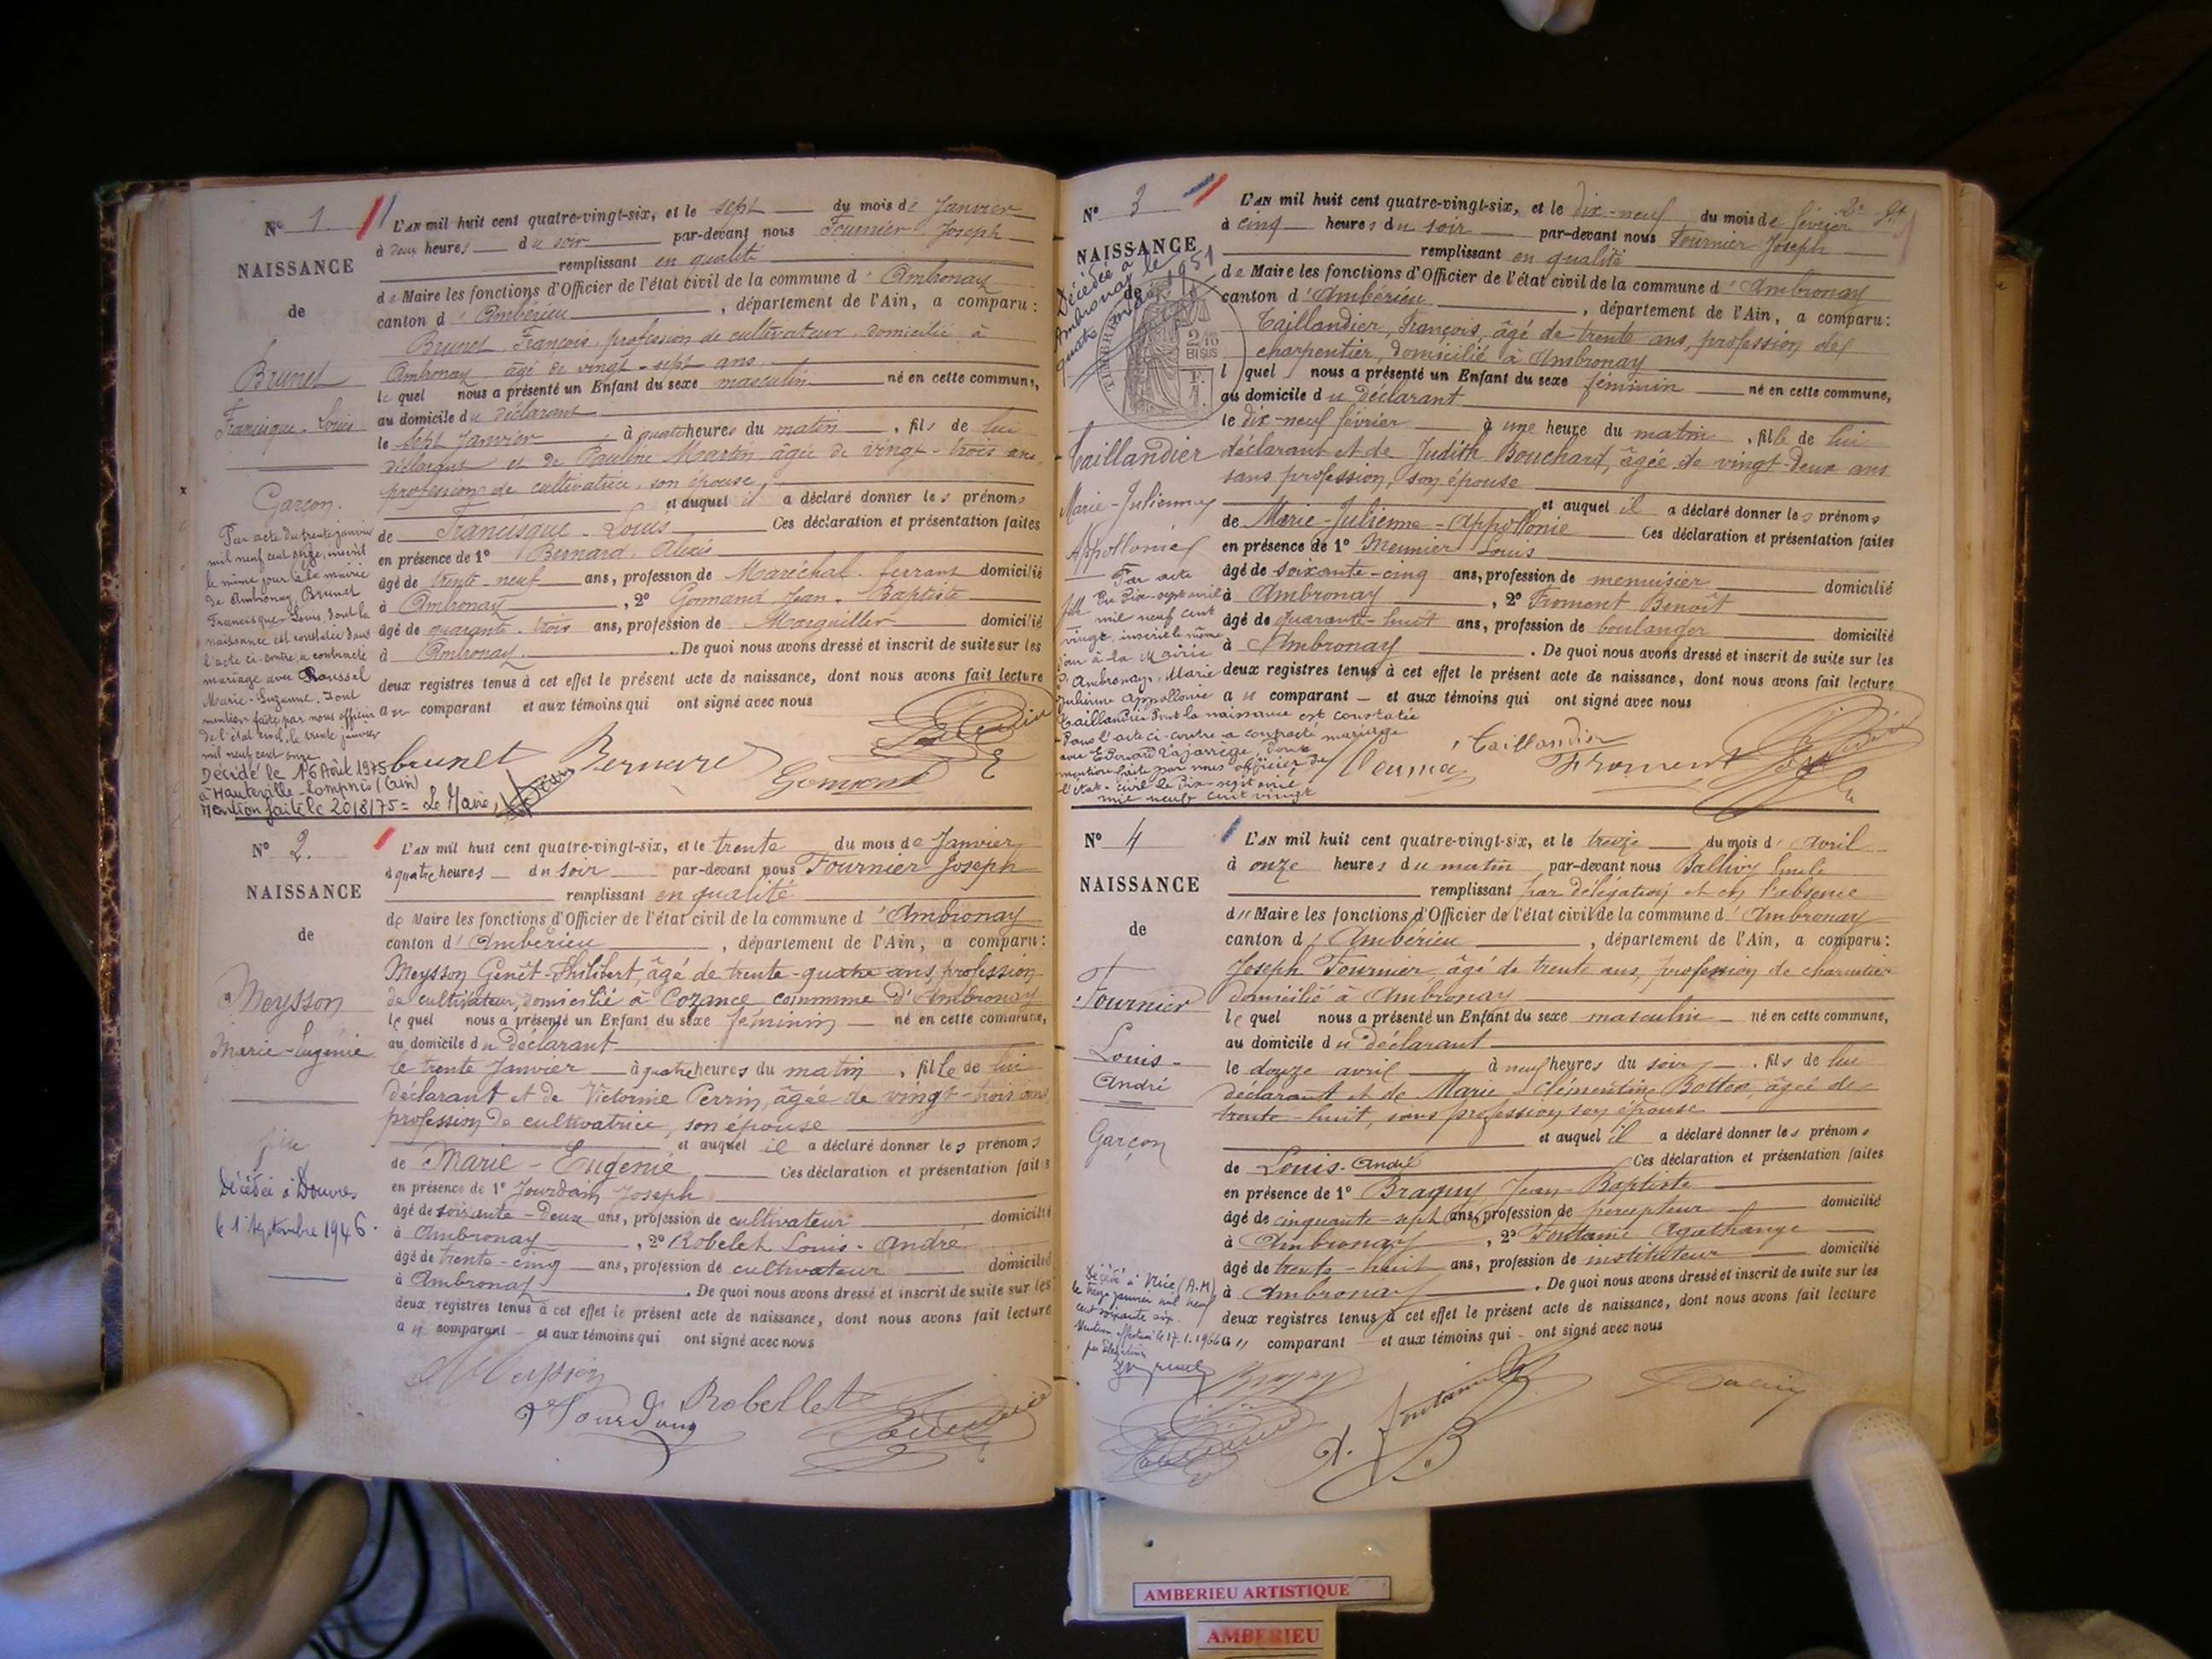 N° 1.
NAISSANCE
de
Brunet
Francisque-Louis
Garçon.
Par acte du trente janvier
mil neuf cent onze, inscrit
le même jour à la mairie
de Ambronay, Brunet
Francisque-Louis, dont la
naissance est constatée dans
l'acte ci-contre, a contracté
mariage avec Roussel
Marie-Suzanne. Dont
mention faite par nous officier
de l'état civil, le trente janvier
mil neuf cent onze.
Décédé le 16 Août 1975
à Hauteville-Lompnès (Ain)
Mention faite le 20/8/75 = Le Maire,
L'AN mil huit cent quatre-vingt-six, et le sept du mois de Janvier
à deux heures du soir par-devant nous Fournier Joseph
remplissant en qualité
de Maire les fonctions d'Officier de l'état civil de la commune d'Ambronay
canton d'Ambérieu, département de l'Ain, a comparu:
Brunet, François, profession de cultivateur, domicilié à
Ambronay, âgé de vingt-sept ans
le quel nous a présenté un Enfant du sexe masculin né en cette commune,
au domicile du déclarant
le sept Janvier, à quatre heures du matin, fils de lui
déclarant et de Pauline Martin âgée de vingt-trois ans,
profession de cultivatrice, son épouse,
et auquel il a déclaré donner les prénoms
de Francisque-Louis Ces déclaration et présentation faites
en présence de 1° Bernard, Alexis
âgé de trente-neuf ans, profession de Maréchal-ferrant domicilié
à Ambronay, 2° Gomand, Jean-Baptiste
âgé de quarante-trois ans, profession de Marguiller domicilié
à Ambronay. De quoi nous avons dressé et inscrit de suite sur les
deux registres tenus à cet effet le présent acte de naissance, dont nous avons fait lecture
au comparant et aux témoins qui ont signé avec nous
brunet Bernard
N° 2.
NAISSANCE
de
Meysson
Marie-Eugénie
fille
Décédée à Douvres
le 1 septembre 1946.
L'AN mil huit cent quatre-vingt-six, et le trente du mois de Janvier
à quatre heures du soir par-devant nous Fournier Joseph
remplissant en qualité
de Maire les fonctions d'Officier de l'état civil de la commune d'Ambronay
canton d'Ambérieu, département de l'Ain, a comparu:
Meysson Genêt-Philibert, âgé de trente-quatre ans, profession
de cultivateur, domicilié à Cozance commune d'Ambronay
le quel nous a présenté un Enfant du sexe féminin né en cette commune,
au domicile du déclarant
le trente Janvier à quatre heures du matin, fille de lui
déclarant et de Victorine Perrin, âgée de vingt-trois ans
profession de cultivatrice, son épouse
et auquel il a déclaré donner les prénoms
de Marie-Eugénie, Ces déclaration et présentation faites
en présence de 1° Jourdain Joseph
âgé de soixante-deux ans, profession de cultivateur domicilié
à Ambronay, 2° Robelet Louis-André
âgé de trente-cinq ans, profession de cultivateur domicilié
à Ambronay. De quoi nous avons dressé et inscrit de suite sur les
deux registres tenus à cet effet le présent acte de naissance, dont nous avons fait lecture
au comparant et aux témoins qui ont signé avec nous
Meysson
Jourdain Robellet
N° 3
NAISSANCE
de
Décédée à
Ambronay le
quatre 1951
2/10
EN SUS
Taillandier
Marie-Julienne
Appollonie
fille
Par acte
du dix-sept avril
mil neuf cent
vingt, inscrit le même
jour à la Mairie
d'Ambronay, Marie
Julienne Appollonie
Taillandier dont la naissance est constatée
dans l'acte ci-contre a contracté mariage
avec Edouard Lajarrège, dont
mention faite par nous officier de
l'état-civil le dix-sept avril
mil neuf cent vingt
L'AN mil huit cent quatre-vingt-six, et le dix-neuf du mois de février
à cinq heures du soir par-devant nous Fournier Joseph
remplissant en qualité
de Maire les fonctions d'Officier de l'état civil de la commune d'Ambronay
canton d'Ambérieu, département de l'Ain, a comparu:
Taillandier, François, âgé de trente ans, profession de
charpentier, domicilié à Ambronay
l quel nous a présenté un Enfant du sexe féminin né en cette commune,
au domicile du déclarant
le dix-neuf février à une heure du matin, fille de lui
déclarant et de Judith Bouchard, âgée de vingt-deux ans
sans profession, son épouse
et auquel il a déclaré donner les prénoms
de Marie-Julienne-Appollonie Ces déclaration et présentation faites
en présence de 1° Meunier Louis
âgé de soixante-cinq ans, profession de menuisier domicilié
à Ambronay, 2° Froment Benoît
âgé de quarante-huit ans, profession de boulanger domicilié
à Ambronay. De quoi nous avons dressé et inscrit de suite sur les
deux registres tenus à cet effet le présent acte de naissance, dont nous avons fait lecture
au comparant et aux témoins qui ont signé avec nous
Taillandier
Froment
N° 4
NAISSANCE
de
Fournier
Louis-
André
Garçon
Décédé à Nice (A.M)
le treize janvier mil neuf
cent soixante six.
Mention effectuée le 17.1.1966
L'AN mil huit cent quatre-vingt-six, et le treize du mois d'avril
à onze heures du matin par-devant nous Ballivy Emile
remplissant par délégation et en l'absence
du Maire les fonctions d'Officier de l'état civil de la commune d'Ambronay
canton d'Ambérieu, département de l'Ain, a comparu:
Joseph Fournier, âgé de trente ans, profession de charcutier
domicilié à Ambronay
le quel nous a présenté un Enfant du sexe masculin né en cette commune,
au domicile du déclarant
le douze avril à neuf heures du soir, fils de lui
déclarant et de Marie-Clémentine Bottex, âgée de
trente-huit, sans profession son épouse
et auquel il a déclaré donner les prénoms
de Louis-André Ces déclaration et présentation faites
en présence de 1° Braquy Jean-Baptiste
âgé de cinquante-sept ans, profession de percepteur domicilié
à Ambronay, 2° Fontaine Agathange
âgé de trente-huit ans, profession de instituteur domicilié
à Ambronay. De quoi nous avons dressé et inscrit de suite sur les
deux registres tenus à cet effet le présent acte de naissance, dont nous avons fait lecture
au comparant et aux témoins qui ont signé avec nous
A. Fontaine
AMBERIEU ARTISTIQUE
AMBERIEU